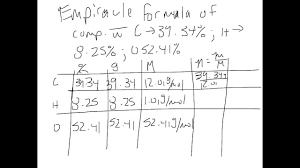 Empiracule formula of
comp. w̅ C → 39.34%; H →
8.25%; O 52.41%
% g M n = m/M
C 39.34 39.34 12.01g/mol 39.34g/12.01
H 8.25 8.25 1.01g/mol
O 52.41 52.41 52.41g/mol